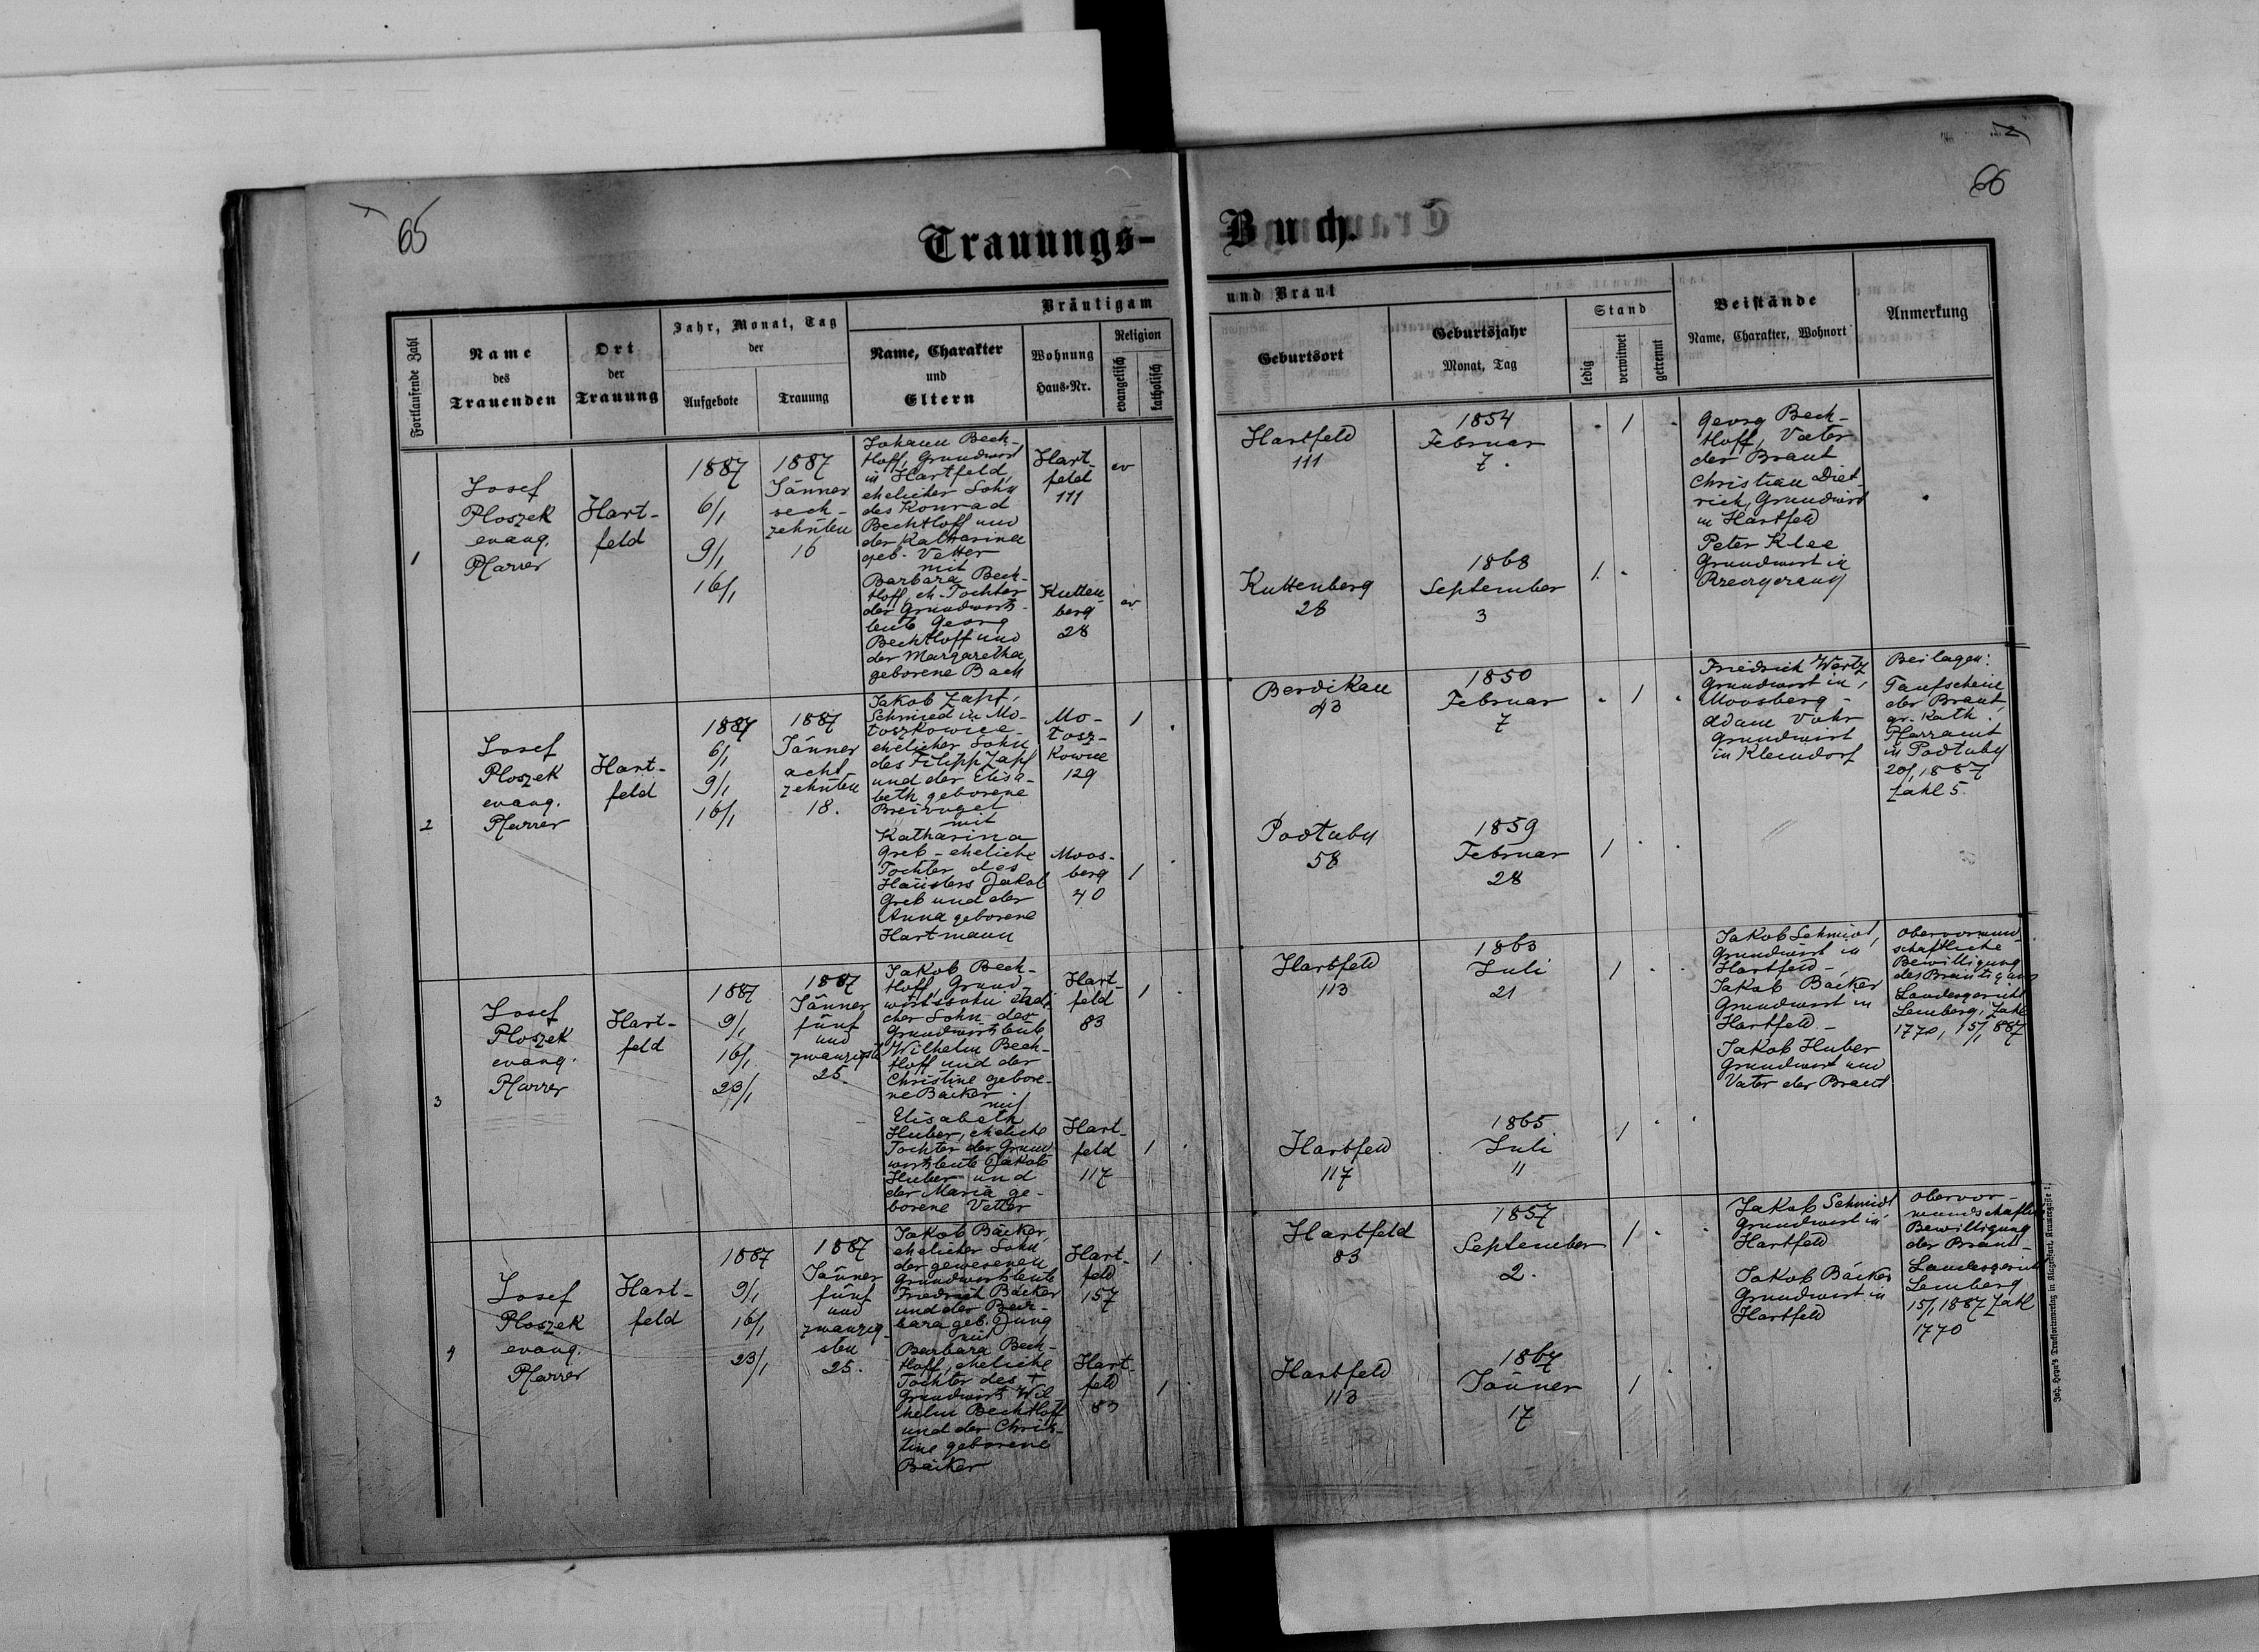 65
66
Trauungs-Buch.
Fortlaufende Zahl
Name
des
Trauenden
Ort
der
Trauung
Jahr, Monat, Tag
der
Aufgebote
Trauung
Bräutigam
und Braut
Name, Charakter
und
Eltern
Wohnung
Haus-Nr.
Religion
evangelisch
katholisch
Geburtsort
Geburtsjahr
Monat, Tag
Stand
ledig
verwitwet
getrennt
Beistände
Name, Charakter, Wohnort
Anmerkung
1
Josef
Ploszek
evang.
Pfarrer
Hart-
feld
1887
6/1
9/1
16/1
1887
Jänner
sech-
zehnten
16
Johann Bech-
tloff, Grundwirt
in Hartfeld,
ehelicher Sohn
des Konrad
Bechtloff und
der Katharina
geb. Vetter
mit
Barbara Bech-
tloff, eh. Tochter
der Grundwirts-
leute Georg
Bechtloff und
der Margaretha
geborene Bach
Hart-
feld
111
ev
Kutten-
berg
28
ev
Hartfeld
111
1854
Februar
7.
1
Kuttenberg
28
1868
September
3
1
Georg Bech-
tloff, Vater
der Braut
Christian Diet-
rich, Grundwirt
in Hartfeld
Peter Klee
Grundwirt in
2
Josef
Ploszek
evang.
Pfarrer
Hart-
feld
1887
6/1
9/1
16/1
1887
Jänner
acht-
zehnten
18.
Jakob Zapf,
Schmied in Mo-
toszkowice
ehelicher Sohn
des Filipp Zapf
und der Elisa-
beth geborene
Breivogel
mit
Katharina
Greb - eheliche
Tochter des
Häuslers Jakob
Greb und der
Anna geborene
Hartmann
Mo-
tosz-
kowice
129
1
Moos-
berg
40
1
Berdikau
43
1850
Februar
7
1
Podtuby
58
1859
Februar
28
1
Friedrich Wertz
Grundwirt in
Moosberg -
Adam Vohr
Grundwirt
in Kleindorf
Beilagen:
Taufschein
der Braut,
gr. kath.
Pfarramt
in Podtuby
20/1 1887
Zahl 5.
3
Josef
Ploszek
evang.
Pfarrer
Hart-
feld
1887
9/1
16/1
23/1
1887
Jänner
fünf
und
zwanzigsten
25.
Jakob Bech-
tloff, Grund-
wirtssohn, eheli-
cher Sohn der
Grundwirtsleute
Wilhelm Bech-
tloff und der
Christine gebore-
ne Bäcker
mit
Elisabeth
Huber, eheliche
Tochter der Grund-
wirtsleute Jakob
Huber und
der Maria ge-
borene Vetter
Hart-
feld
83
1
Hart-
feld
117
1
Hartfeld
113
1863
Juli
21
1
Hartfeld
117
1865
Juli
11
1
Jakob Schmidt,
Grundwirt in
Hartfeld -
Jakob Bäcker
Grundwirt in
Hartfeld -
Jakob Huber
Grundwirt und
Vater der Braut
Obervormund-
schaftliche
Bewilligung
des Bräutigams
Landesgericht
Lemberg, Zahl
1770, 15/1 887
4
Josef
Ploszek
evang.
Pfarrer
Hart-
feld
1887
9/1
16/1
23/1
1887
Jänner
fünf
und
zwanzig-
sten
25.
Jakob Bäcker,
ehelicher Sohn
der gewesenen
Grundwirtsleute
Friedrich Bäcker
und der Bar-
bara geb. Jung
mit
Barbara Bech-
tloff, eheliche
Tochter des †
Grundwirt Wil-
helm Bechtloff
und der Chris-
tine geborene
Bäcker
Hart-
feld
157
1
Hart-
feld
83
1
Hartfeld
83
1857
September
2.
1
Hartfeld
113
1867
Jänner
17
1
Jakob Schmidt
Grundwirt in
Hartfeld
Jakob Bäcker
Grundwirt in
Hartfeld
Obervor-
mundschaftliche
Bewilligung
der Braut -
Landesgericht
Lemberg
15/1 1887 Zahl
1770
Joh. Heyn's Drucksortenverlag in Klagenfurt,